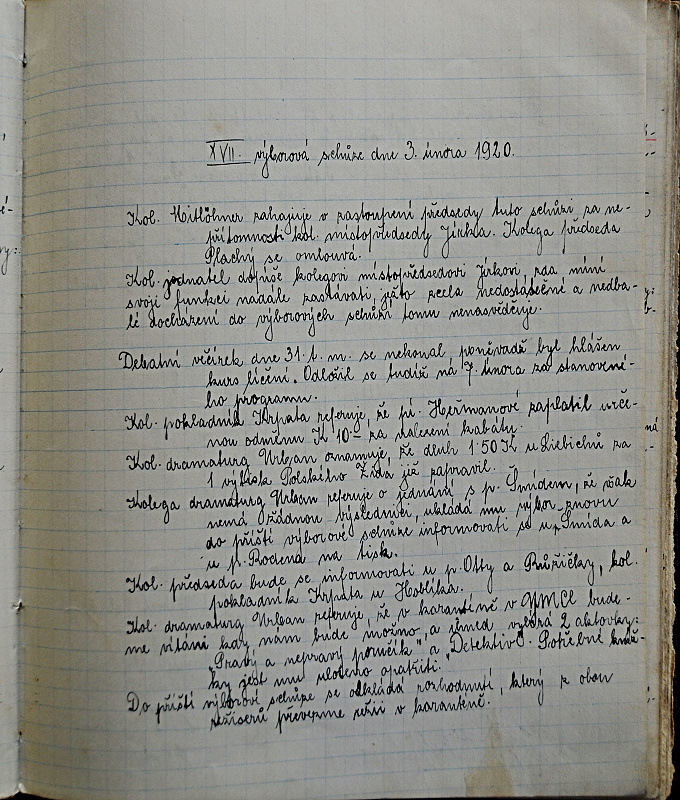 XVII. výborová schůze dne 3. února 1920.
Kol. Hitlöhner zahajuje v zastoupení předsedy tuto schůzi za ne-
přítomnosti kol. místopředsedy Jirkla. Kolega předseda
Plachý se omlouvá.
Kol. jednatel dopíše kolegovi místopředsedovi Jirkovi, zda míní
svoji funkci nadále zastávati, ježto zcela nedostatečné a nedba-
lé docházení do výborových schůzí tomu nenasvědčuje.
Debatní večírek dne 31. t. m. se nekonal, poněvadž byl hlášen
kurs líčení. Odložil se tudíž na 7. února za stanovené-
ho programu.
Kol. pokladník Krpata referuje, že pí. Heřmanové zaplatil urče-
nou odměnu K 10- za nalezení kabátu.
Kol. dramaturg Urban oznamuje, že dluh 1·50 K u Liebichů za
1 výtisk Polského Žida již zapravil.
Kolega dramaturg Urban referuje o jednání s p. Šmídem, že však
nemá žádnou výslednici, ukládá mu výbor znovu
do příští výborové schůze informovati se u p. Šmída a
u p. Rodena na tisk.
Kol. předseda bude se informovati u p. Otty a Růžičky, kol.
pokladník Krpata u Hoblíka.
Kol. dramaturg Urban referuje, že v karanténě v YMCE bude-
me vítáni kdy nám bude možno, a ihned vybírá 2 aktovky:
„Pravý a nepravý poručík" a „Detektiv". Potřebné kníž-
ky jest mu uloženo opatřiti.
Do příští výborové schůze se odkládá rozhodnutí, který z obou
režisérů převezme režii v karanténě.